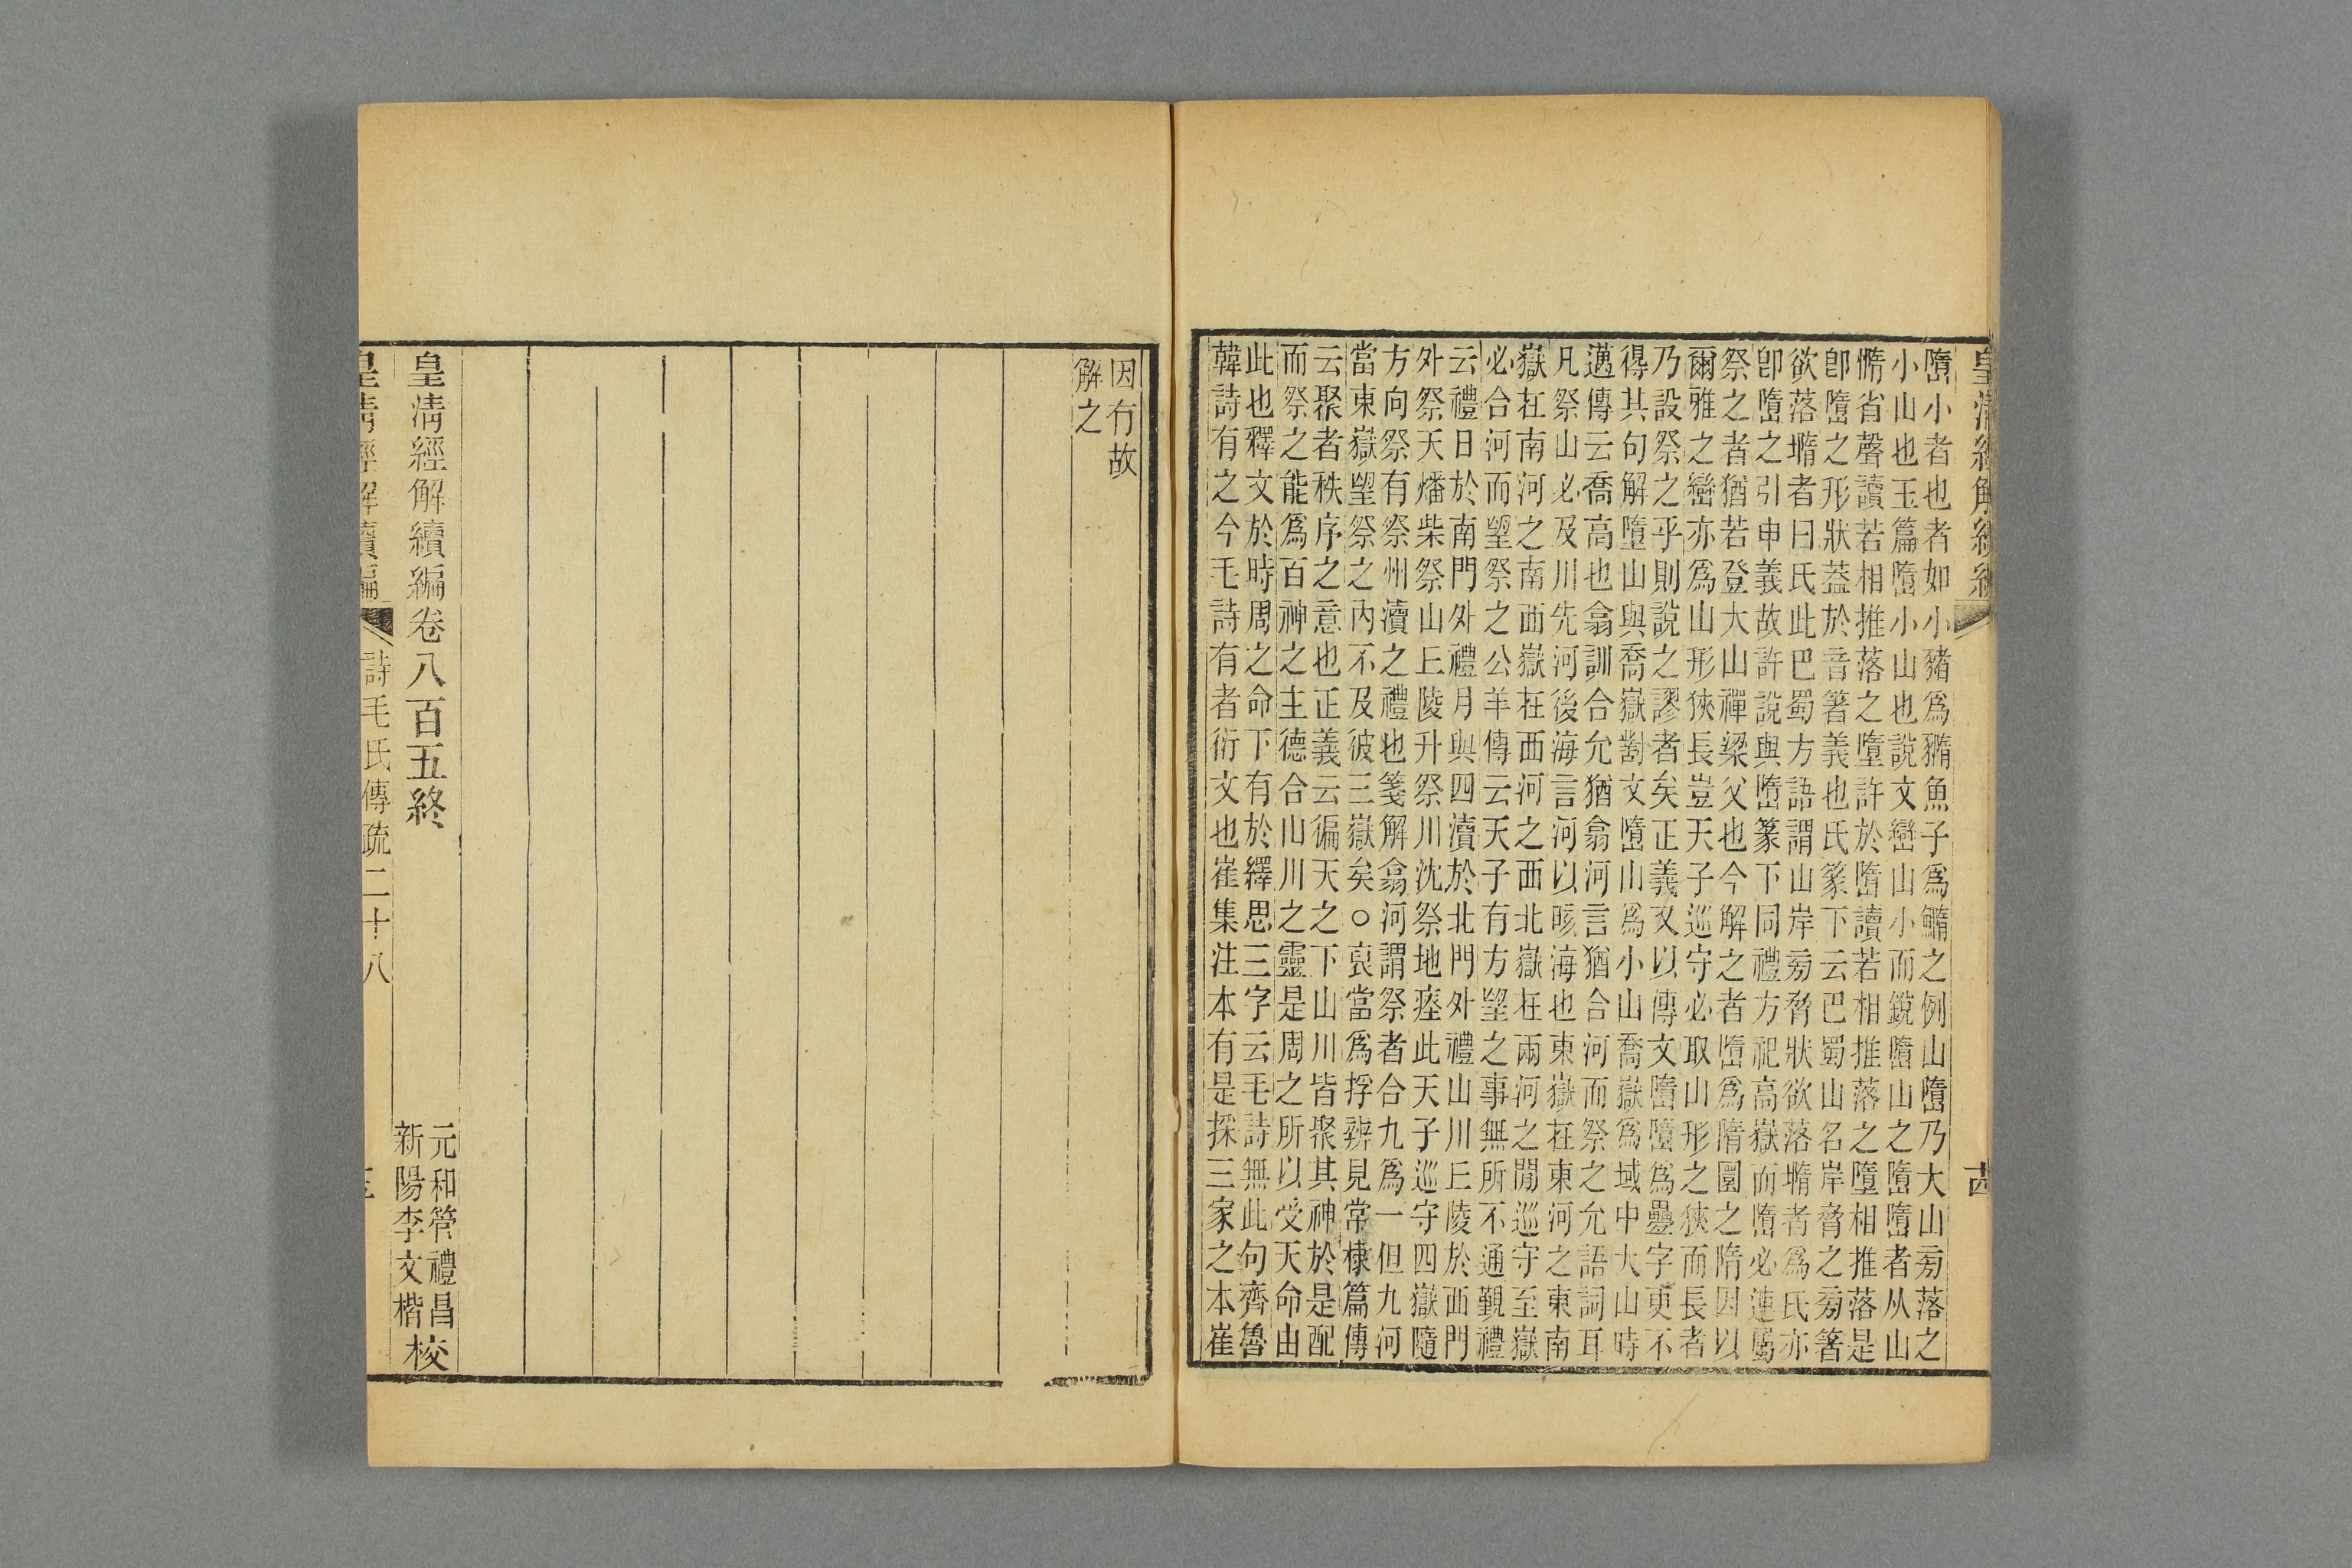 皇清經解續編
嶞小者也者如小豬爲䝐魚子爲鰖之例山嶞乃大山㫄落之
小山也玉篇嶞小山也說文巒山小而銳嶞山之嶞嶞者从山
憜省聲讀若相推落之墮許於嶞讀若相推落之墮相推落是
卽嶞之形狀葢於音箸義也氏篆下云巴蜀山名岸脅之㫄箸
欲落墮者曰氏此巴蜀方語謂山岸㫄脅狀欲落墮者爲氏亦
卽嶞之引申義故許說與嶞篆下同禮方祀高嶽而嶞必連屬
祭之者猶若登大山禪梁父也今解之者嶞爲隋圜之隋因以
爾雅之巒亦爲山形狹長豈天子巡守必取山形之狹而長者
乃設祭之乎則說之謬者矣正義又以傳文嶞墮爲疊字更不
得其句解墮山與喬嶽對文嶞山爲小山喬嶽爲域中大山時
邁傳云喬高也翕訓合允猶翕河言猶合河而祭之允語詞耳
凡祭山必及川先河後海言河以晐海也東嶽在東河之東南
嶽在南河之南西嶽在西河之西北嶽在兩河之閒巡守至嶽
必合河而朢祭之公羊傳云天子有方朢之事無所不通覲禮
云禮日於南門外禮月與四瀆於北門外禮山川丘陵於西門
外祭天燔柴祭山丘陵升祭川沈祭地瘞此天子巡守四嶽隨
方向祭有祭州瀆之禮也箋解翕河謂祭者合九爲一但九河
當東嶽朢祭之內不及彼三嶽矣○裒當爲捊辨見常棣篇傳
云聚者秩序之意也正義云徧天之下山川皆聚其神於是配
而祭之能爲百神之主德合山川之靈是周之所以受天命由
此也釋文於時周之命下有於繹思三字云毛詩無此句齊魯
韓詩有之今毛詩有者衍文也崔集注本有是採三家之本崔
因有故
解之
皇清經解續編卷八百五終
元和管禮昌
新陽李文楷
校
皇清經解續編
詩毛氏傳疏二十八